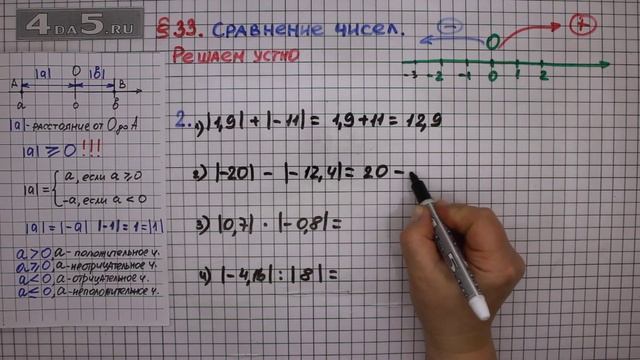 4DA5.RU
§33. Сравнение чисел.
Решаем устно
− 0 +
-3 -2 -1 0 1 2
|a| 0 |b|
A B
a 0 b
|a| - расстояние от 0 до A
|a| ≥ 0 !!!
|a| = { a, если a ≥ 0
-a, если a < 0
|a| = |-a| |-1| = 1 = |1|
a > 0, a - положительное ч.
a ≥ 0, a - неотрицательное ч.
a < 0, a - отрицательное ч.
a ≤ 0, a - неположительное ч.
2. 1) |1,9| + |-11| = 1,9 + 11 = 12,9
2) |-20| - |-12,4| = 20 -
3) |0,7| · |-0,8| =
4) |-4,16| : |8| =